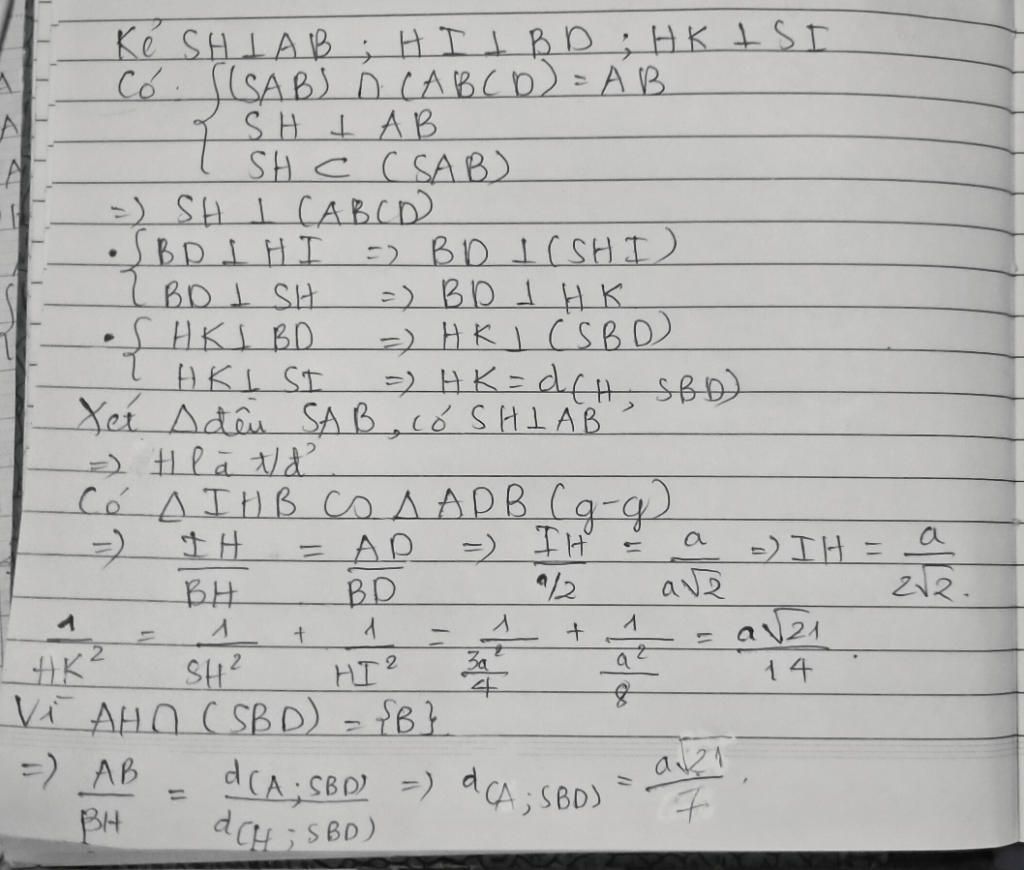 Kẻ SH⊥AB ; HI⊥BD ; HK⊥SI
Có. {(SAB) ∩ (ABCD) = AB
SH ⊥ AB
SH ⊂ (SAB)
=> SH ⊥ (ABCD)
• {BD ⊥ HI => BD ⊥ (SHI)
BD ⊥ SH => BD ⊥ HK
• {HK⊥BD => HK⊥(SBD)
HK⊥SI => HK = d(H; SBD)
Xét Δđều SAB, có SH⊥AB
=> H là t/đ.
Có Δ IHB ∽ Δ ADB (g-g)
=> IH/BH = AD/BD => IH/(a/2) = a/(a√2) => IH = a/(2√2).
1/HK² = 1/SH² + 1/HI² = 1/(3a²/4) + 1/(a²/8) = a√21/14.
Vì AH∩(SBD) = {B}
=> AB/BH = d(A;SBD)/d(H;SBD) => d(A;SBD) = a√21/7.